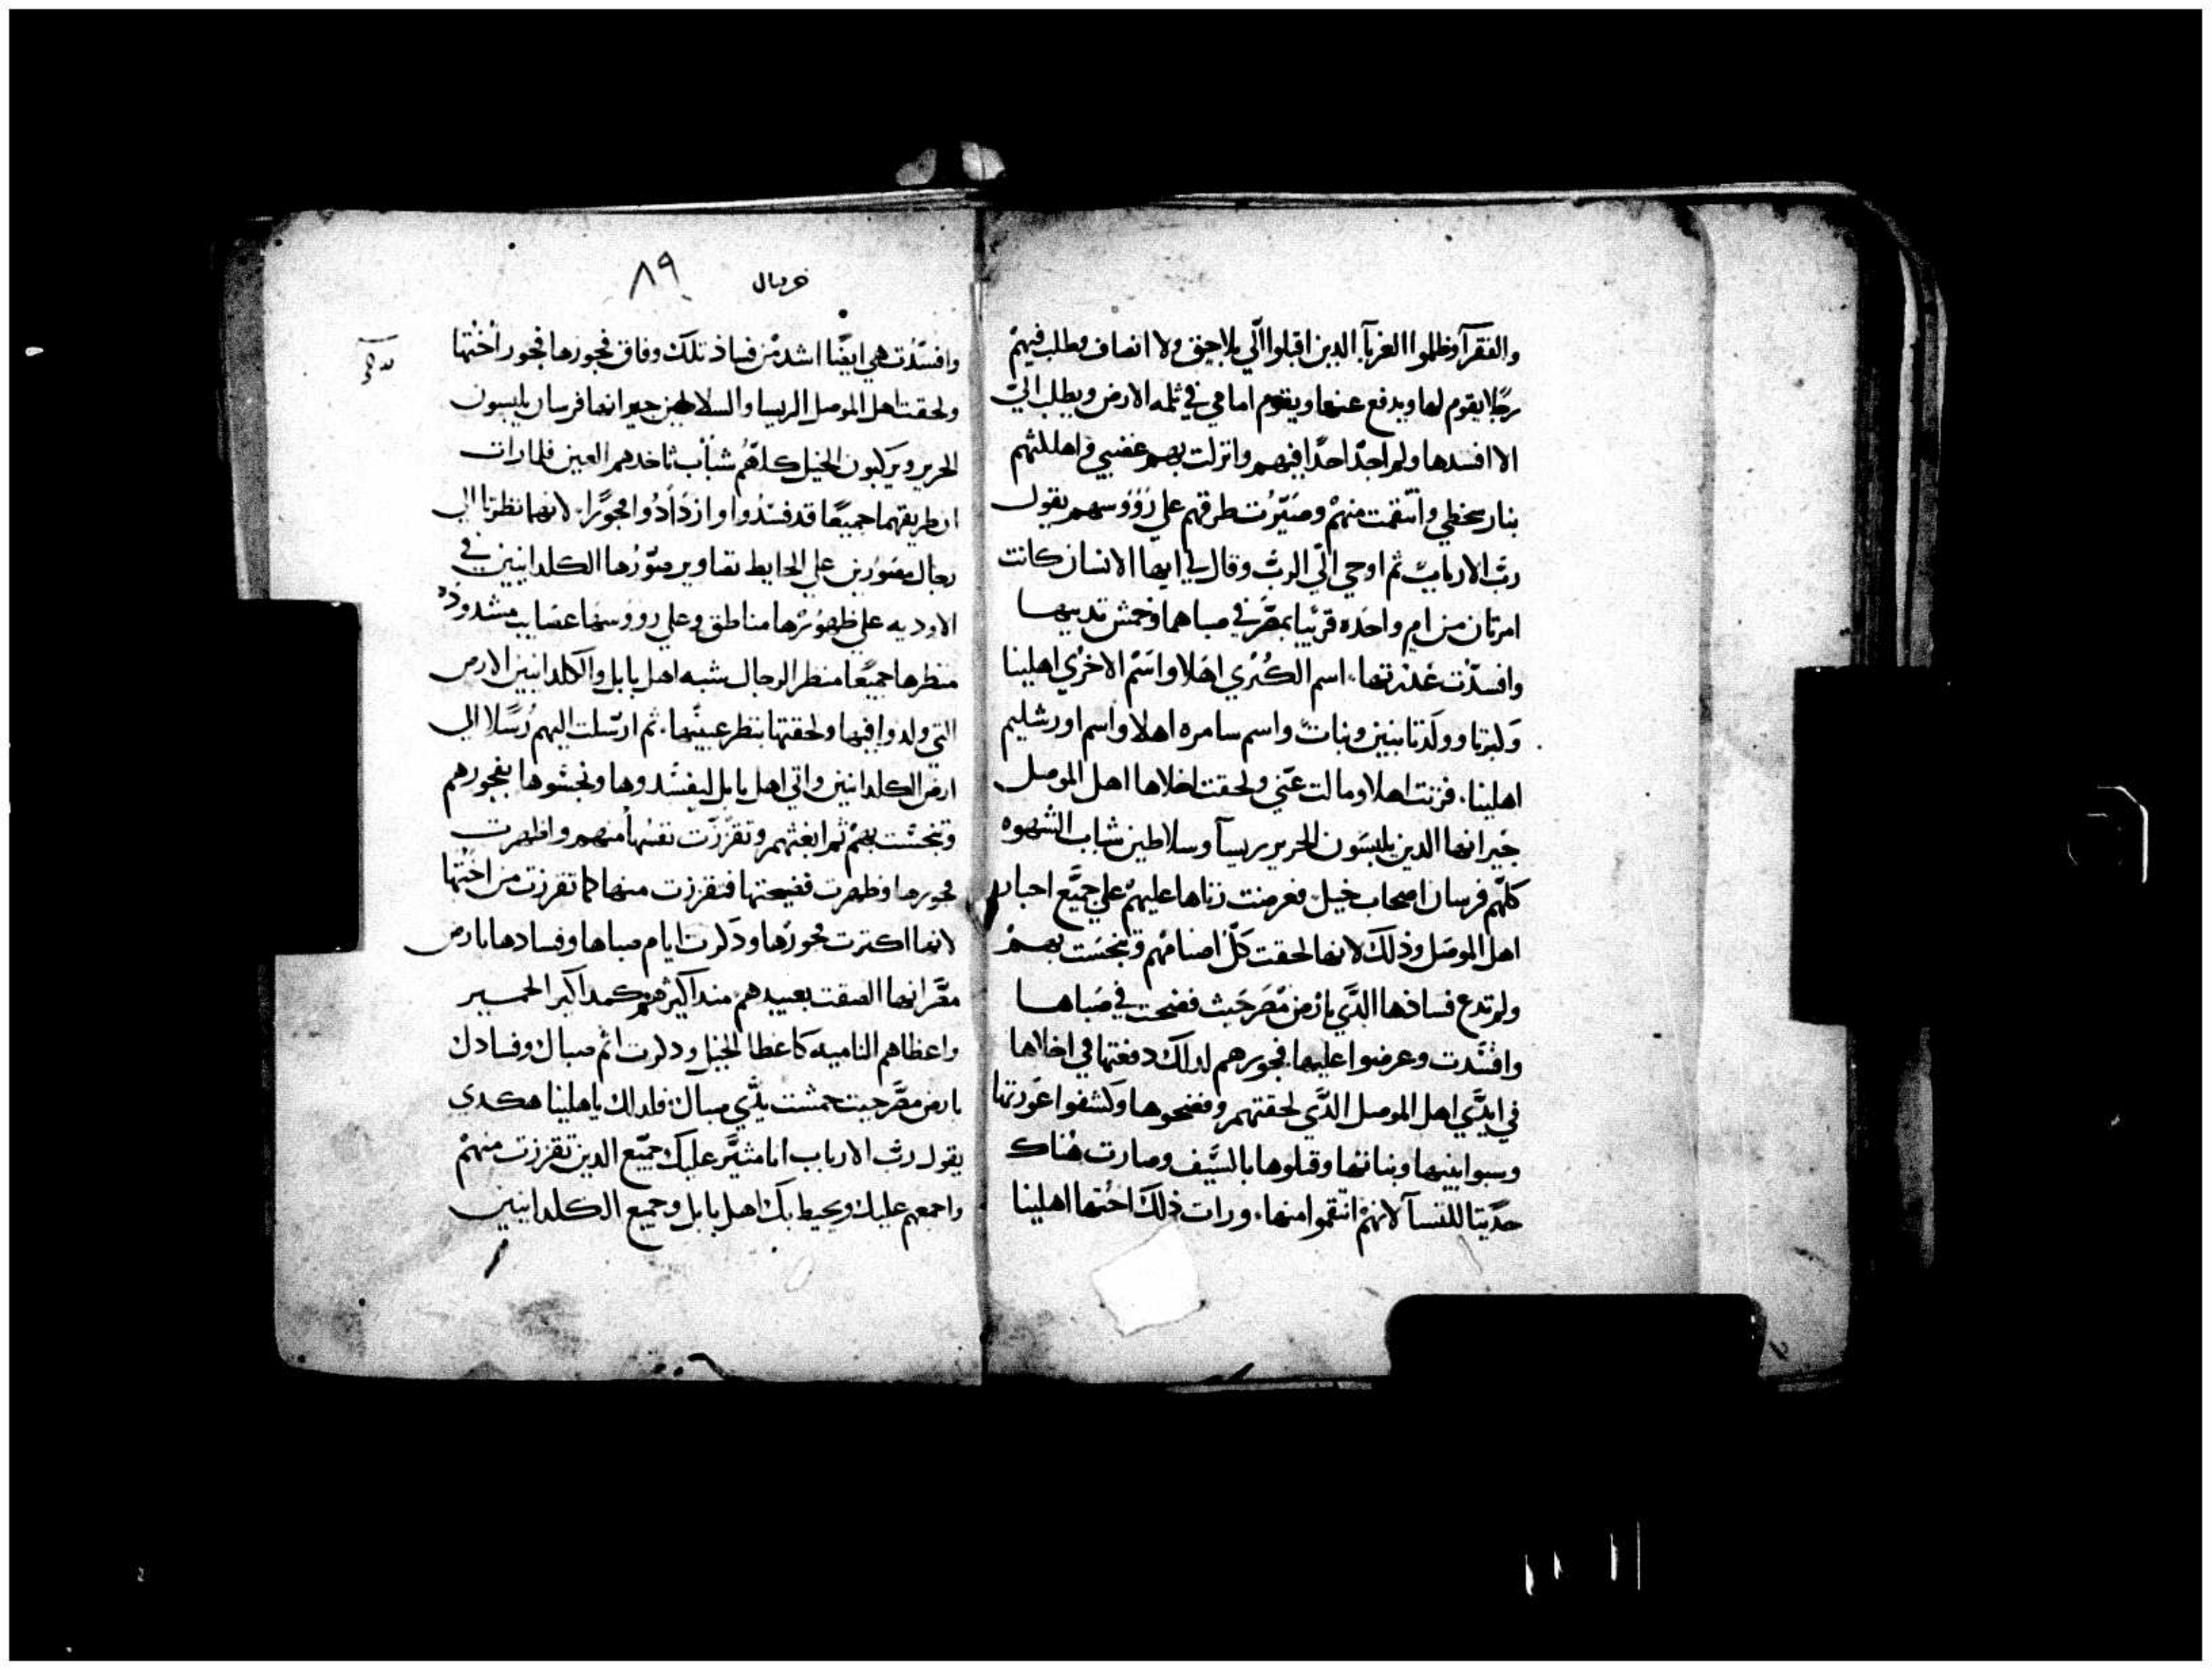 والفقرآ وظلموا الغربآ الدين اقبلوا الّي بلا حق ولا انصاف وطلب فيهم
رجلا يقوم لها ويدفع عنها ويقوم امامي في ثلمه الارض ويطلب اليّ
الا افسدها ولم اجد احدًا فيهم وانزلت بهم غضبي واهللتهم
بنار سخطي وانتقمت منهم وصيّرت طرقهم علي رؤوسهم يقول
ربّ الارباب ثم اوحي الّي الربّ وقال لي ايها الانسان كانت
امرتان من ام واحده قرنيا بمصر في صباهما وخمش تدييهما
وافسدت عدرتها، اسم الكبري اهلا واسم الاخري اهلينا
وكبرتا وولدتا بنين وبنات واسم سامره اهلا واسم اورشليم
اهلينا، فزنت اهلا ومالت عنّي ولحقت اخلاها اهل الموصل
جيرانها الدين يلبسون الحرير ريسآ وسلاطين شباب الشهوه
كلّهم فرسان اصحاب خيل فعرضت زناها عليهم علي جميع احبار
اهل الموصل وذلك لانها لحقت كلّ اصنامهم وتنجست بهم
ولم تدع فسادها الدّي بارض مصر حيث فضحت في صباها
وافسدت وعرضوا عليها فجورهم لدلك دفعتها في اخلاها
في ايدّي اهل الموصل الدّي لحقتهم وفضحوها وكشفوا عورتها
وسبوا بنيها وبناتها وقتلوها بالسّيف وصارت هناك
حدّيتا للنسآ لانهم انتقموا منها، ورات ذلك اختها اهلينا
حزقيال ٨٩
وافسدت هي ايضًا اشد من فساد تلك وفاق فجورها فجور اختها
ولحقت اهل الموصل الريسا والسلاطين جيرانها فرسان يلبسون
الحرير ويركبون الخيل كلهم شباب تاخدهم العين فلما رات
ان طريقهما جميعًا قد فسدوا وازدادوا فجورًا، لانها نظرت الي
رجال مصورين علي الحايط تصاوير صوّرها الكلدانيين في
الاوديه علي ظهورها مناطق وعلي رووسها عصايب مشدوده
منظرها جميعًا منظر الرجال شبه اهل بابل والكلدانيين الارص
التي ولدوا فيها ولحقتها بنظر عينيها، ثم ارسلت اليهم رسلا الي
ارض الكلدانيين واتي اهل بابل ليفسدوها ونجسوها بفجورهم
وتنجست بهم ثم ابغتهم وتقززت نفسها منهم واظهرت
فجورها وظهرت فضيحتها فتقززت منها كما تقززت من اختها
لانها اكترت فجورها ودكرت ايام صباها وفسادها بارص
مصر انها الصقت بعبيدهم
واعظاهم الناميه كاعظا الخيل ودكرت اثم صباك وفسادك
بارض مصر حيت خمشت تدّي صباك فلدلك يا هلينا هكدي
يقول ربّ الارباب انا مثير عليك جميع الدين تقززت منهم
واجمعهم عليك ويحيط بك اهل بابل وجميع الكلدانيين